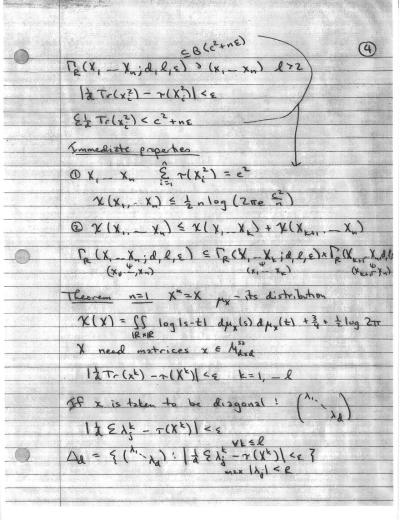 ④
⊆ B(c²+nε)
Γ_R(X₁ ... X_n; d, l, ε) ∋ (x₁ ... x_n) l > 2
|1/d Tr(x_i²) − τ(X_i²)| < ε
Σ 1/d Tr(x_i²) < c² + nε
Immediate properties
① X₁ ... X_n Σ_{i=1}^n τ(X_i²) = c²
χ(X₁, ... X_n) ≤ ½ n log (2πe c²/n)
② χ(X₁, ... X_n) ≤ χ(X₁ ... X_k) + χ(X_{k+1}, ... X_n)
Γ_R(X₁ ... X_n; d, l, ε) ⊆ Γ_R(X₁ ... X_k; d, l, ε) × Γ_R(X_{k+1} ... X_n; d, l, ε)
(x₁, ..., x_n) (x₁ ... x_k) (x_{k+1}, ... x_n)
Theorem n=1 X* = X μ_X - its distribution
χ(X) = ∬_{ℝ×ℝ} log |s−t| dμ_X(s) dμ_X(t) + 3/4 + ½ log 2π
X need matrices x ∈ M_{d×d}^{sa}
|1/d Tr(x^k) − τ(X^k)| < ε k = 1, ... l
If x is taken to be diagonal : (λ₁ ⋱ λ_d)
|1/d Σ λ_j^k − τ(X^k)| < ε
∀k ≤ l
Δ_d = { (λ₁ ⋱ λ_d) : |1/d Σ λ_j^k − τ(X^k)| < ε }
max |λ_j| < R